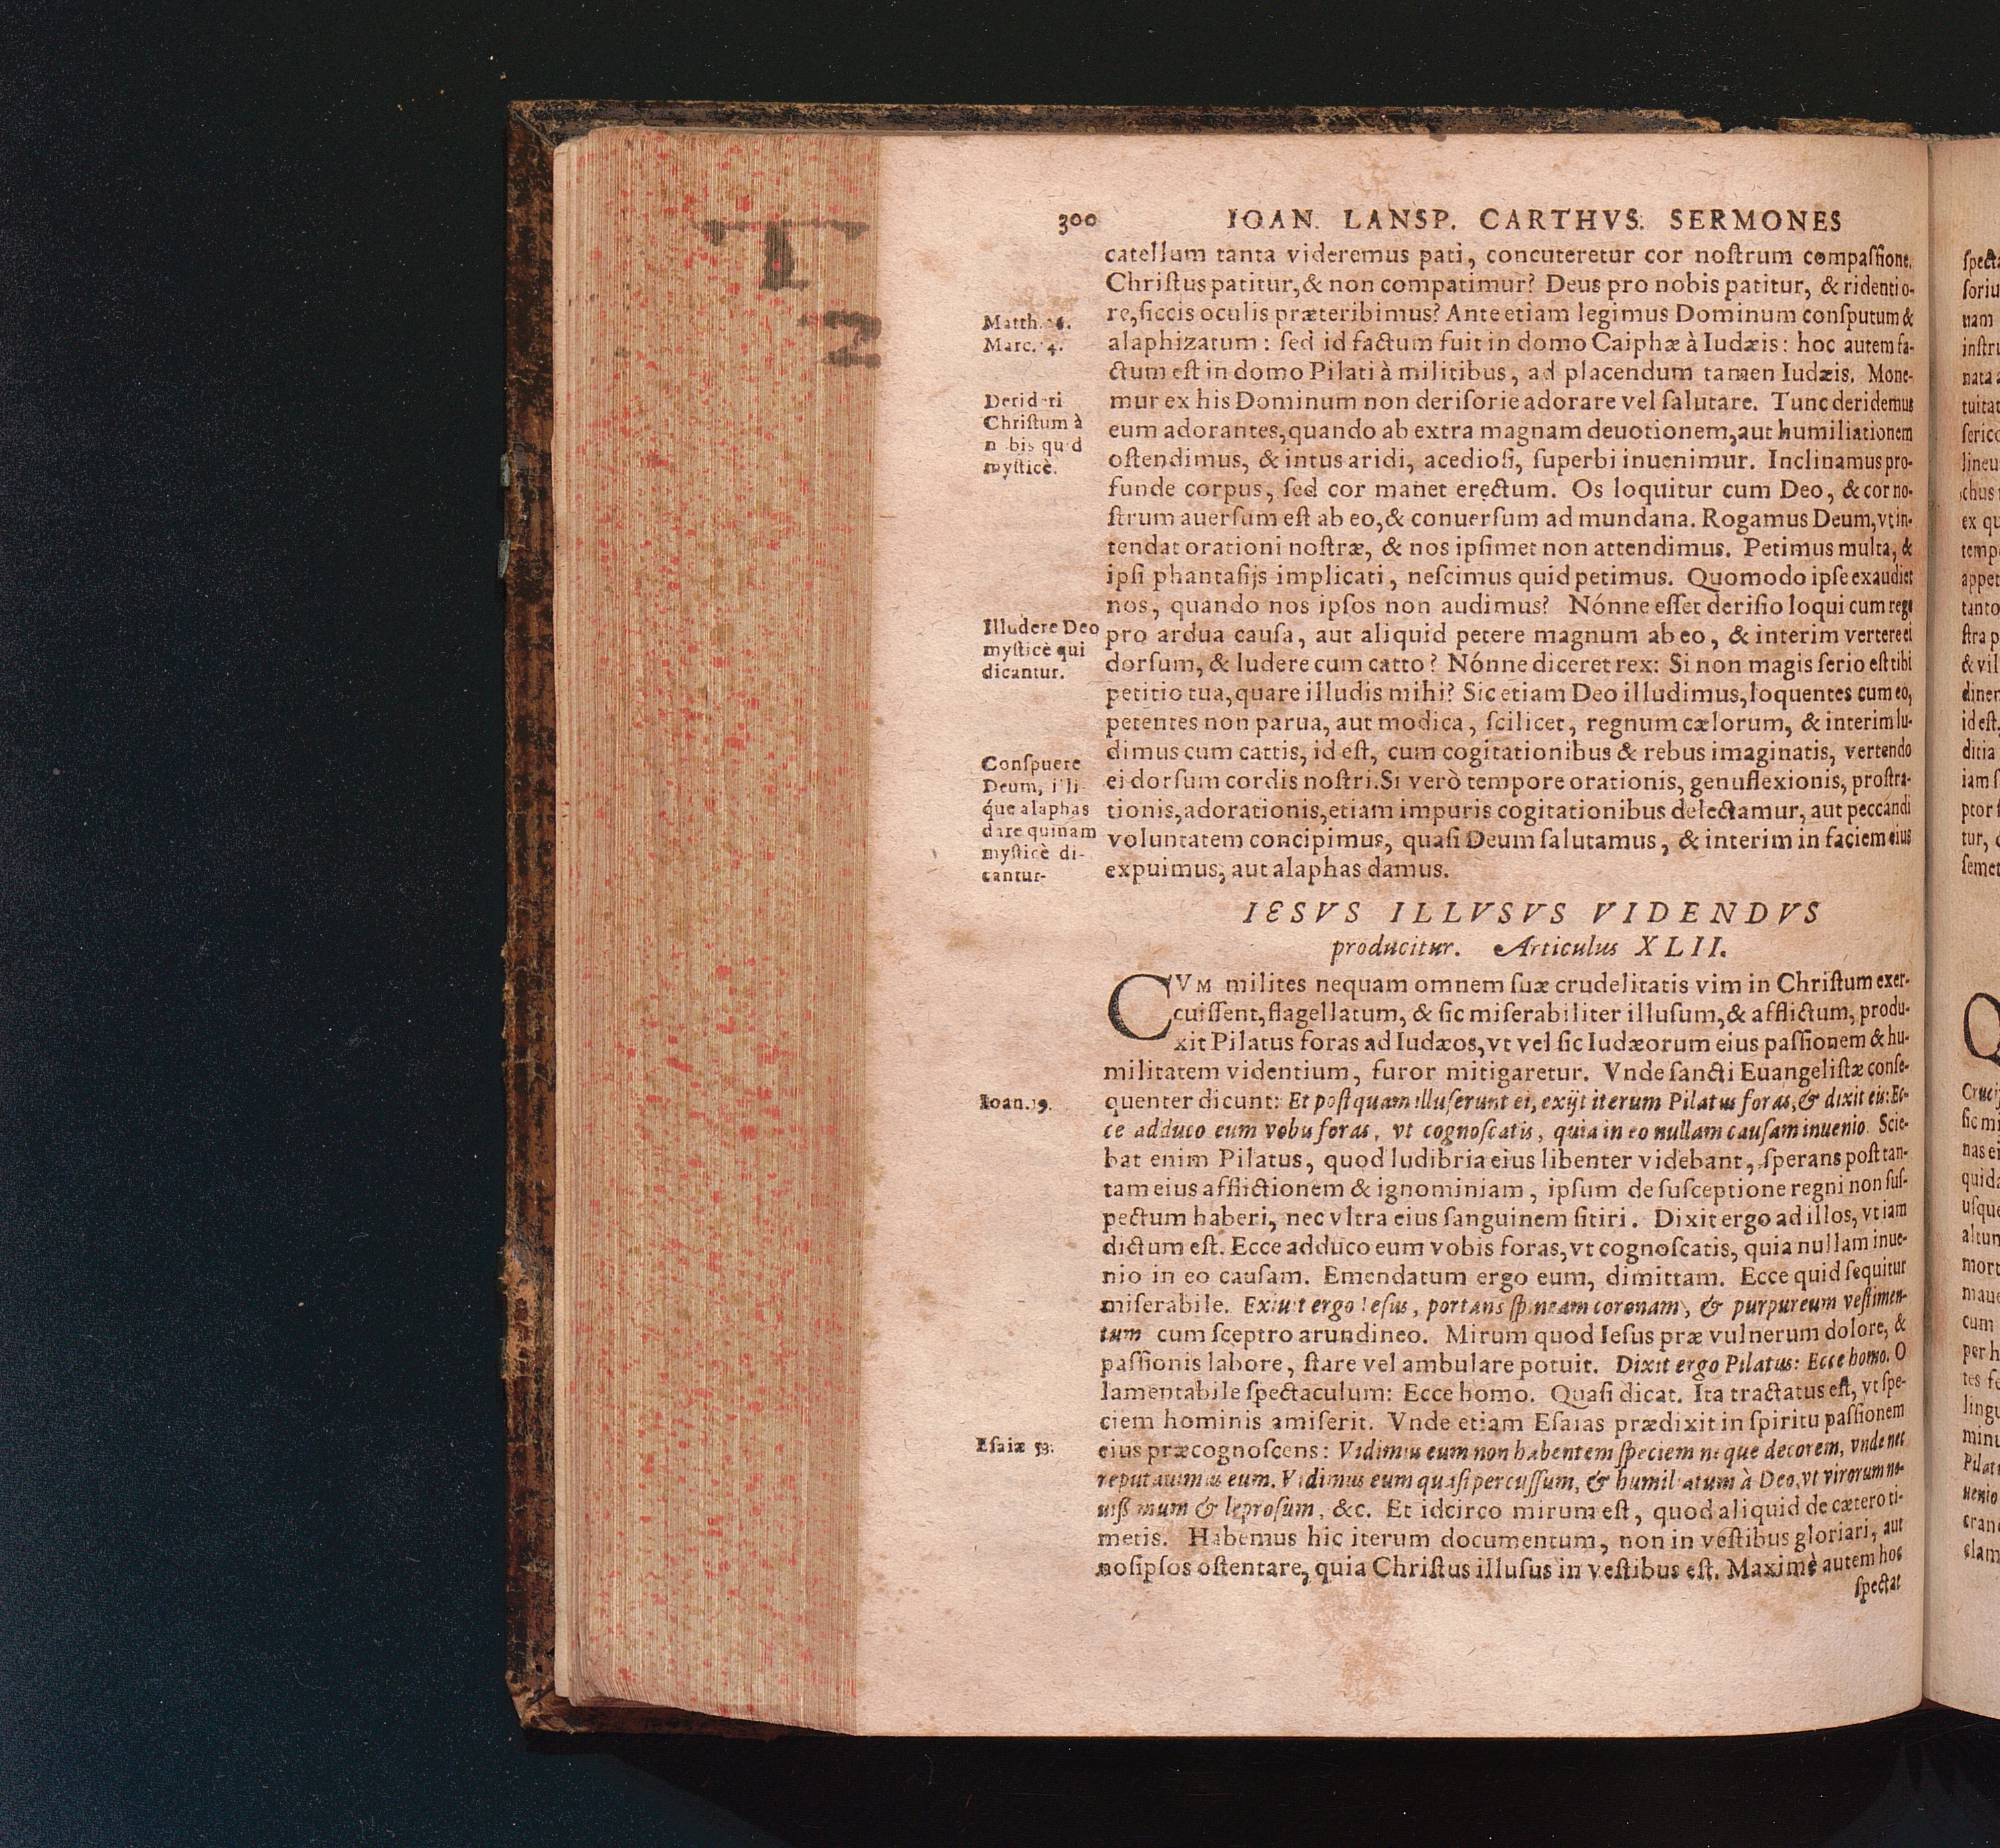 300 IOAN. LANSP. CARTHVS. SERMONES
catellum tanta videremus pati, concuteretur cor noſtrum compaſſione,
Chriſtus patitur, & non compatimur? Deus pro nobis patitur, & ridentio-
re, ſiccis oculis præteribimus? Ante etiam legimus Dominum conſputum &
alaphizatum: ſed id factum fuit in domo Caiphæ à Iudæis: hoc autem fa-
ctum eſt in domo Pilati à militibus, ad placendum tamen Iudæis. Mone-
mur ex his Dominum non deriſorie adorare vel ſalutare. Tunc deridemus
eum adorantes, quando ab extra magnam deuotionem, aut humiliationem
oſtendimus, & intus aridi, acedioſi, ſuperbi inuenimur. Inclinamus pro-
funde corpus, ſed cor manet erectum. Os loquitur cum Deo, & cor no-
ſtrum auerſum eſt ab eo, & conuerſum ad mundana. Rogamus Deum, vt in-
tendat orationi noſtræ, & nos ipſimet non attendimus. Petimus multa, &
ipſi phantaſijs implicati, neſcimus quid petimus. Quomodo ipſe exaudiet
nos, quando nos ipſos non audimus? Nónne eſſet deriſio loqui cum rege
pro ardua cauſa, aut aliquid petere magnum ab eo, & interim vertere ei
dorſum, & ludere cum catto? Nónne diceret rex: Si non magis ſerio eſt tibi
petitio tua, quare illudis mihi? Sic etiam Deo illudimus, loquentes cum eo,
petentes non parua, aut modica, ſcilicet, regnum cælorum, & interim lu-
dimus cum cattis, id eſt, cum cogitationibus & rebus imaginatis, vertendo
ei dorſum cordis noſtri. Si verò tempore orationis, genuflexionis, proſtra-
tionis, adorationis, etiam impuris cogitationibus delectamur, aut peccandi
voluntatem concipimus, quaſi Deum ſalutamus, & interim in faciem eius
expuimus, aut alaphas damus.
Matth.
Marc.
Christum à
myſticè.
Illudere Deo
myſticè qui
dicantur.
Conſpuere
Deum,
que alaphas
dare quinam
myſticè di-
cantur.
IESVS ILLVSVS VIDENDVS
producitur. Articulus XLII.
CVM milites nequam omnem ſuæ crudelitatis vim in Chriſtum exer-
cuiſſent, flagellatum, & ſic miſerabiliter illuſum, & afflictum, produ-
xit Pilatus foras ad Iudæos, vt vel ſic Iudæorum eius paſſionem & hu-
militatem videntium, furor mitigaretur. Vnde ſancti Euangeliſtæ conſe-
quenter dicunt: Et poſtquam illuſerunt ei, exijt iterum Pilatus foras, & dixit eis: Ec-
ce adduco eum vobis foras, vt cognoſcatis, quia in eo nullam cauſam inuenio. Scie-
bat enim Pilatus, quod ludibria eius libenter videbant, ſperans poſt tan-
tam eius afflictionem & ignominiam, ipſum de ſuſceptione regni non ſuſ-
pectum haberi, nec vltra eius ſanguinem ſitiri. Dixit ergo ad illos, vt iam
dictum eſt. Ecce adduco eum vobis foras, vt cognoſcatis, quia nullam inue-
nio in eo cauſam. Emendatum ergo eum, dimittam. Ecce quid ſequitur
miſerabile. Exiuit ergo Ieſus, portans ſpineam coronam, & purpureum veſtimen-
tum cum ſceptro arundineo. Mirum quod Ieſus præ vulnerum dolore, &
paſſionis labore, ſtare vel ambulare potuit. Dixit ergo Pilatus: Ecce homo. O
lamentabile ſpectaculum: Ecce homo. Quaſi dicat. Ita tractatus eſt, vt ſpe-
ciem hominis amiſerit. Vnde etiam Eſaias prædixit in ſpiritu paſſionem
eius præcognoſcens: Vidimus eum non habentem ſpeciem neque decorem, vnde nec
reputauimus eum. Vidimus eum quaſi percuſſum, & humiliatum à Deo, vt virorum no-
uiſſimum & leproſum, &c. Et idcirco mirum eſt, quod aliquid de cætero ti-
metis. Habemus hic iterum documentum, non in veſtibus gloriari, aut
noſipſos oſtentare, quia Chriſtus illuſus in veſtibus eſt. Maximè autem hoc
ſpectat
Ioan. 19.
Eſaiæ 53.